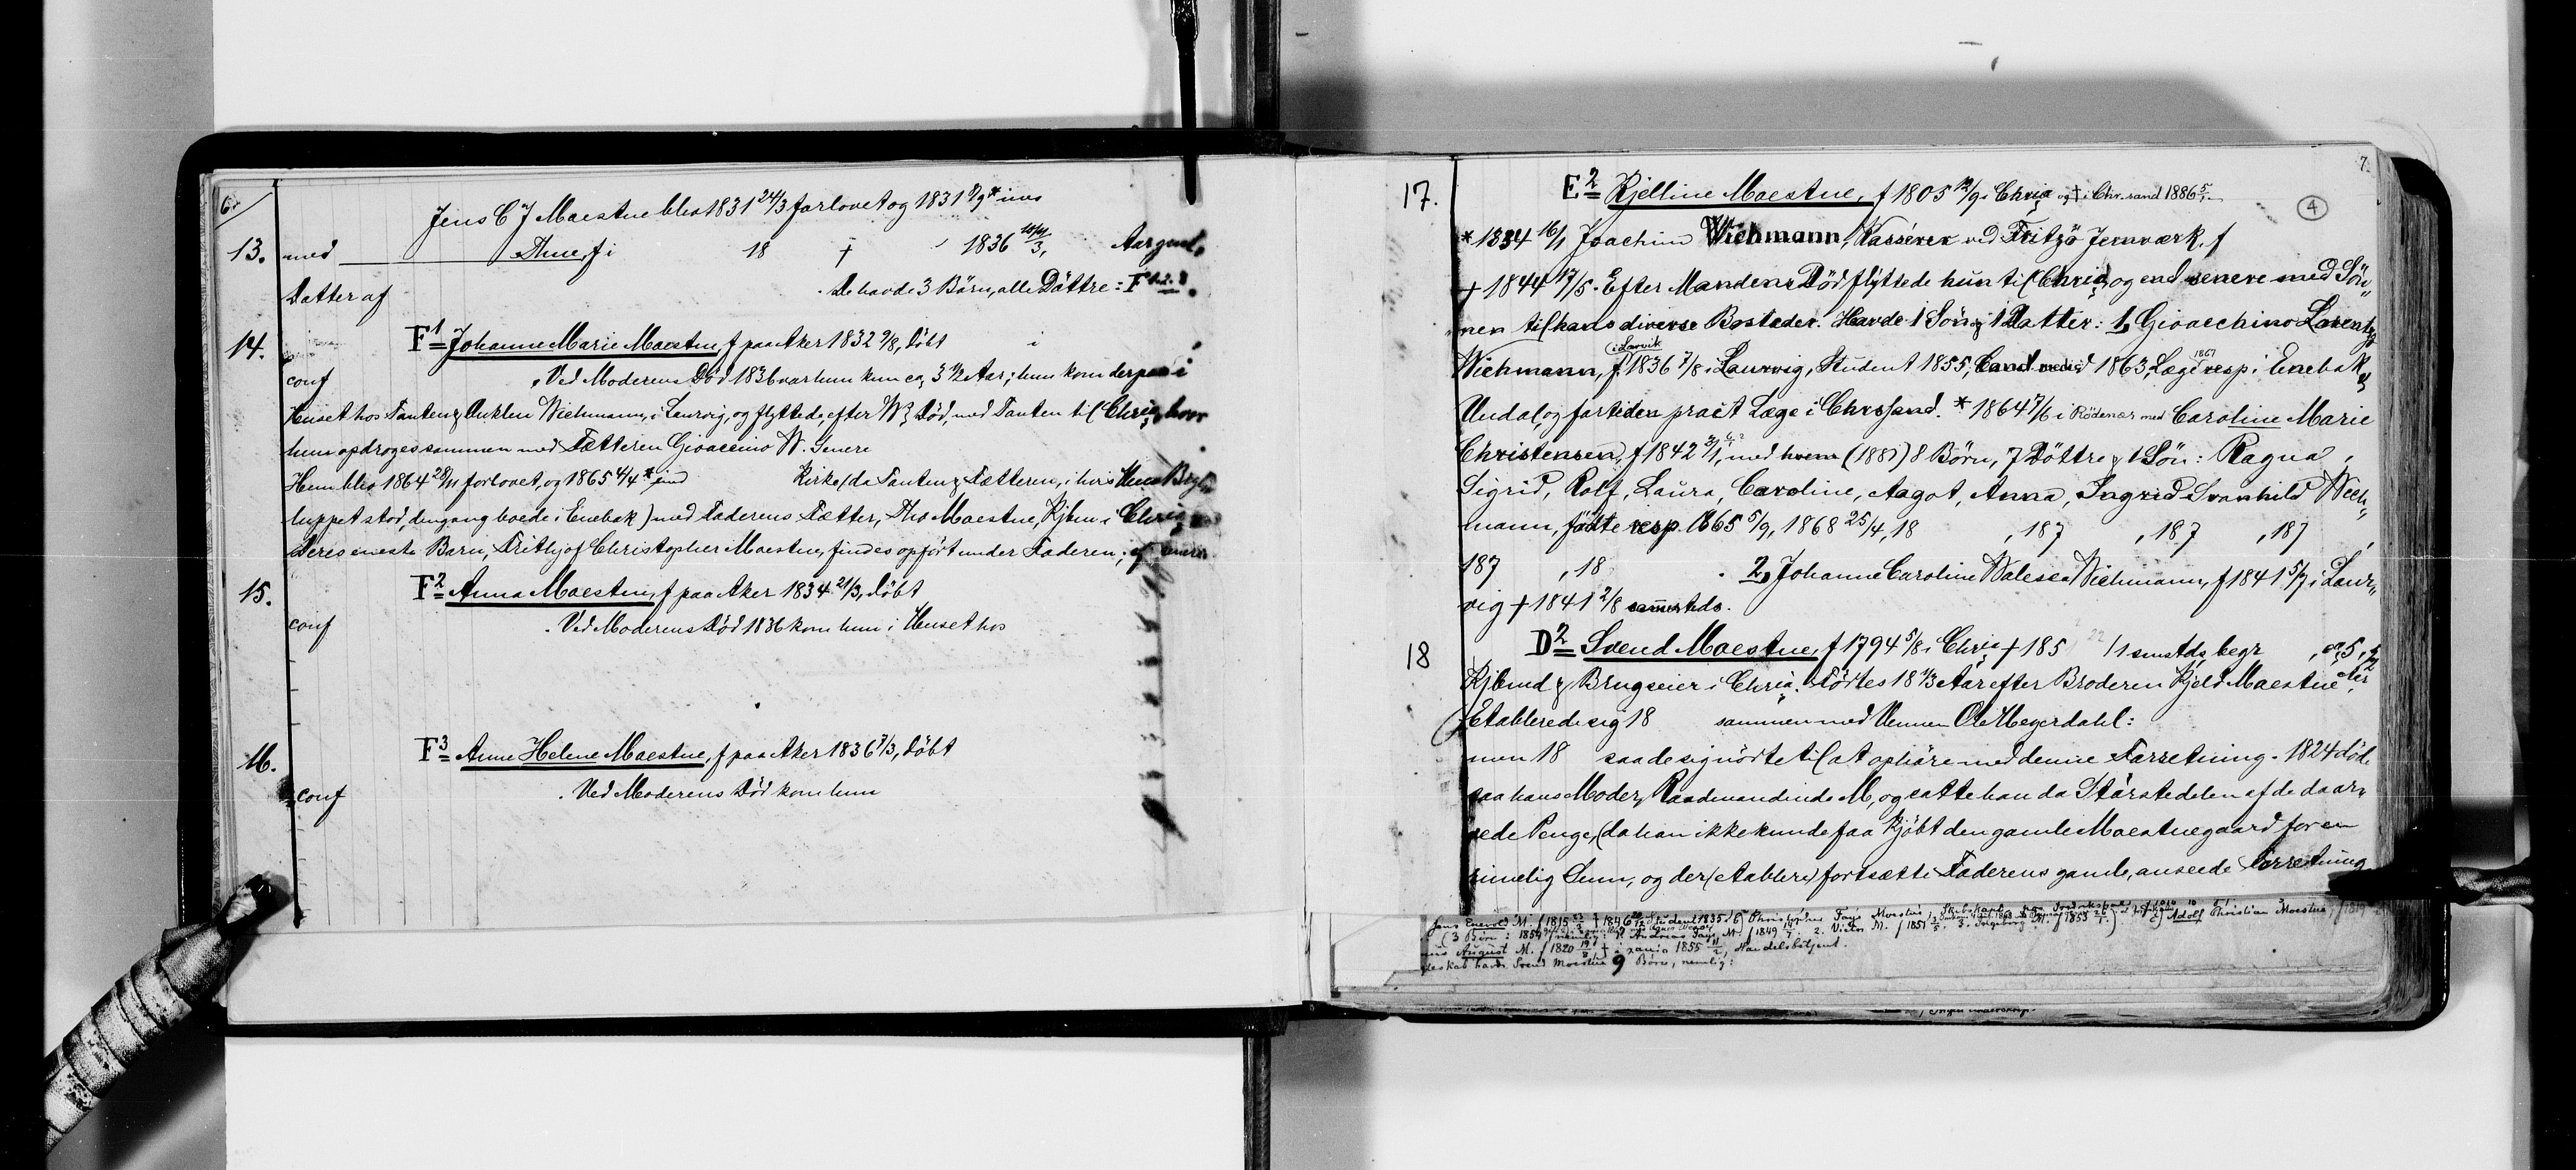 6.
Jens C J Maestue blev 1831 24/3 forlovet og 1831 9/9 * ines
13. med Ane, f i 18 † 1836 /3, Aar gml.
Datter af . De havde 3 Börn, alle Döttre: F
14. F1 Johanne Marie Maestue, f paa Aker 1832 9/8, döbt i
conf . Ved Moderens Död 1836 var hun kun ca 3 1/2 Aar; hun kom derpaa i
Huset hos Tanten & Onklen Wichmann, i Laurvig, og flyttede, efter Ws Död, med Tanten til Chria, hvor
hun opdroges sammen med Fætteren Gioaccino W. Senere
Hun blev 1864 28/11 forlovet, og 1865 4/4 * ind Kirke (da Tanten & Fætteren, i hvis Hus Bryl-
luppet stod, dengang boede i Enebak) med Faderens Fætter, Tho Maestue, Kjbm i Chria
Deres eneste Barn, Frithjof Christopher Maestue, findes opfört under Faderen;
15. F2 Anna Maestue, f paa Aker 1834 21/3, döbt
conf . Ved Moderens Död 1836 kom hun i Huset hos
16. F3 Anne Helene Maestue, f paa Aker 1836 7/3, döbt
conf . Ved Moderens Död kom hun
7.
4
17. E2 Kjelline Maestue, f 1805 12/9 i Chria og † i Chr.sand 1886 5/1
* 1834 16/1 Joachim Wichmann, Kasserer ved Fritzö Jernværk, f
† 1844 17/5. Efter Mandens Död flyttede hun til Chria, og end senere med Sön-
nen til hans diverse Bosteder. Havde 1 Sön & 1 Datter: 1, Gioacchino Lorentz
Wichmann, f (i Larvik 1836 7/8 i Laurvig, Student 1855, Cand medic 1863, Læge 1867 resp i Enebak &
Undal, og fortiden pract Læge i Chrsand. * 1864 7/6 i Rödenæs med Caroline Marie
Christensen, f 1842 3/1, med hvem (1887) 8 Börn, 7 Döttre & 1 Sön: Ragna,
Sigrid, Rolf, Laura, Caroline, Aagot, Anna, Ingrid Svanhild Wich-
mann, födte resp. 1865 5/9, 1868 25/4, 18 , 187 , 187 , 187 ,
187 , 18 . 2, Johanne Caroline Walesca Wichmann, f 1841 5/7 i Laur-
vig † 1841 2/8 sammesteds.
18 D2 Svend Maestue, f 1794 5/8 i Chria † 185 /1 smstds, begr
Kjbmd & Brugseier i Chria. Födtes 18 1/3 Aar efter Broderen Kjeld Maestue
Etablerede sig 18 sammen med Vennen Ole Hegerdahl:
men 18 saa de sig nödte til at ophöre med denne Forretning. 1824 döde
saa hans Moder, Raadmandinde M, og satte han da Störstedelen af de da ar-
vede Penge, (da han ikke kunde faa kjöbt den gamle Maestuegaard for en
rimelig Sum, og der (etablere) fortsætte Faderens gamle, anseede Forretning
Jens Enevold M. f 1815 † 1846 Student 1835
(3 Börn: 1. Andreas Faye M. f 1849 2. Victor M. f 1851 3. Ingeborg M. f 1853 Adolf Christian Maestue, f 1819
August M. f 1820 † i xania 1855 11/2, Handelsbetjent.
havde Svend Maestue 9 Börn, nemlig: